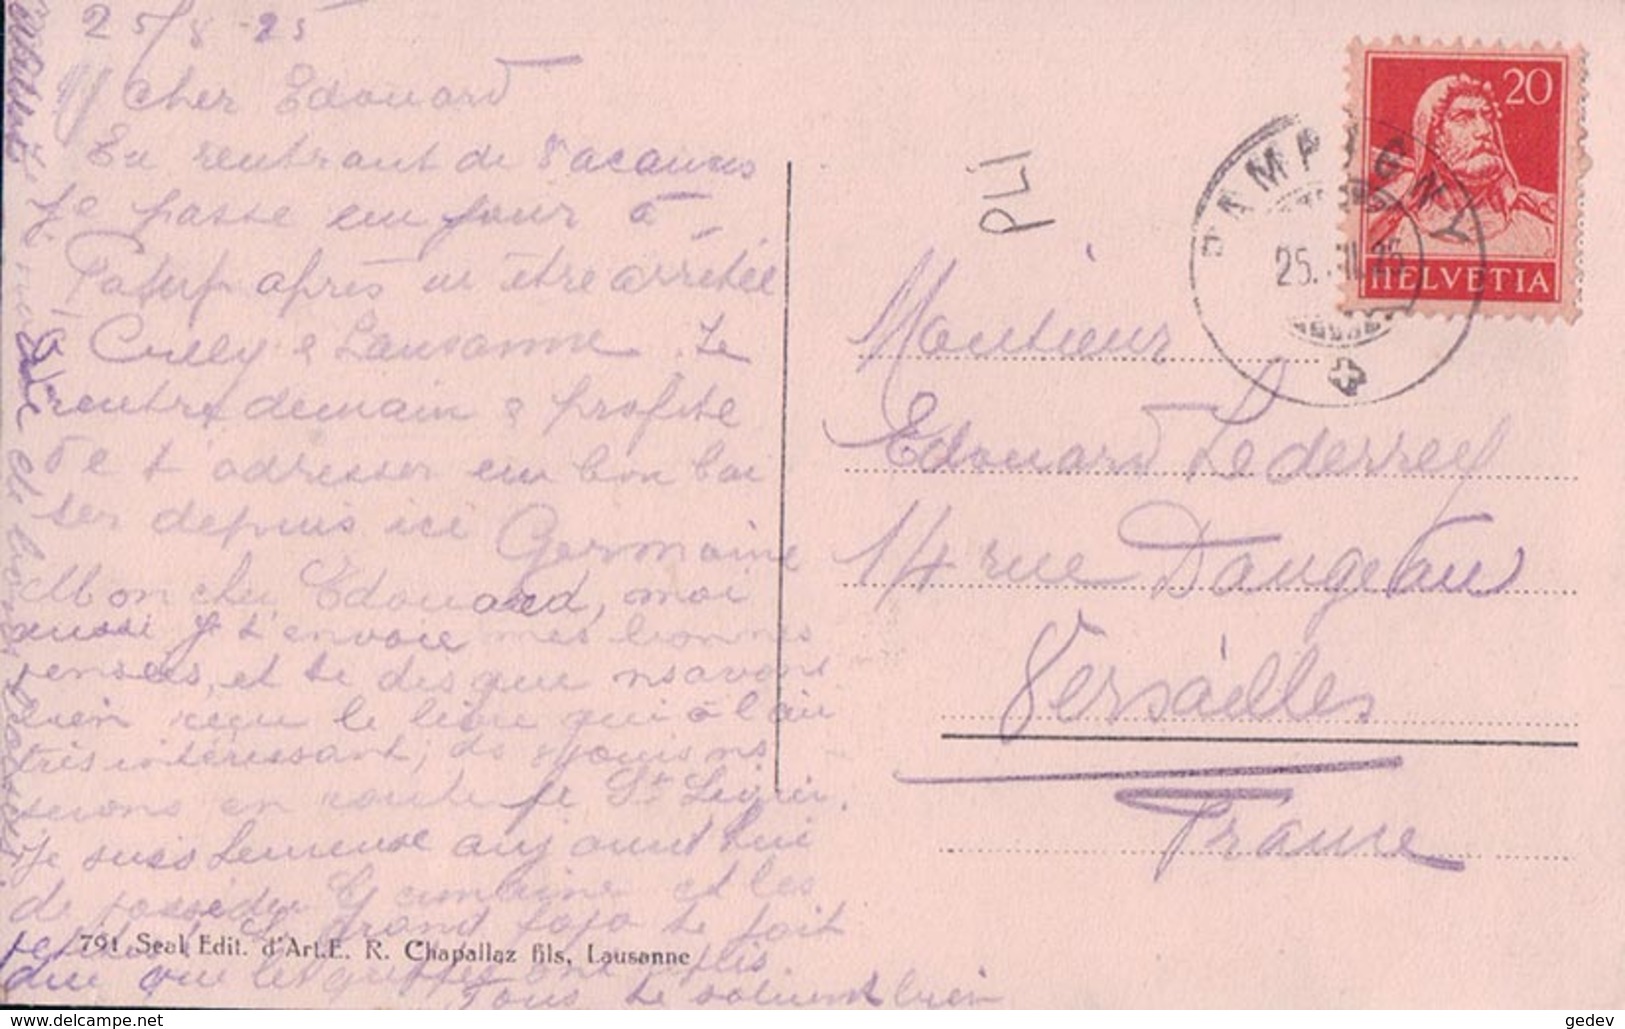 25/8-25
cher Edouard
En rentrant de vacances
je passe un jour à
après m'être arrêtée
à Cully e Lausanne. Je
rentre demain e profite
de t'adresser un bon bai
ser depuis ici Germaine
Mon cher Edouard, moi
aussi je t'envoie mes bonnes
pensées, et te dis que ns avons
bien reçu le livre qui à l'air
très intéressant,
serons en route pr St Légier.
Je suis heureuse aujourd'hui
de posséder Germaine et les
petites! Le grand papa te fait
dire que les
Tous te saluent bien
et bons baisers
PLI
PAMPIGNY
25. VIII. 25
20
HELVETIA
Monsieur
Edouard Lederrey
14 rue Dangeau
Versailles
France
791 Seal Edit. d'Art.E. R. Chapallaz fils, Lausanne
https://www.delcampe.net
gedev